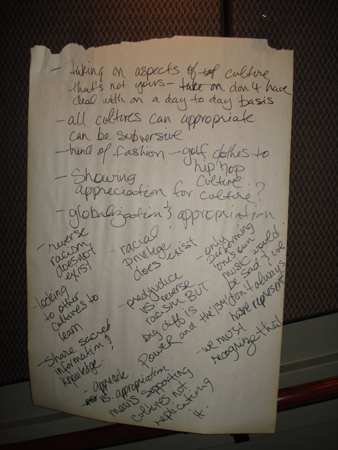 - taking on aspects of culture
that's not yours - take on don't have
deal with on a day to day basis
- all cultures can appropriate
can be subversive
- kind of fashion - golf clothes to
hip hop
culture
- Showing
appreciation for culture?
- globalization & appropriation
- reverse
racism
does not
exist
- looking
to other
cultures to
learn
- share sacred
information &
knowledge
- racial
privilege
does exist
- predjudice
vs reverse
racism BUT
big diff is
power and the
- only
performing
one's own
music would
be sad & we
don't always
have represent
- we must
recognize that
- appreciate
vs appropriation
means supporting
cultures not
replicating
it.